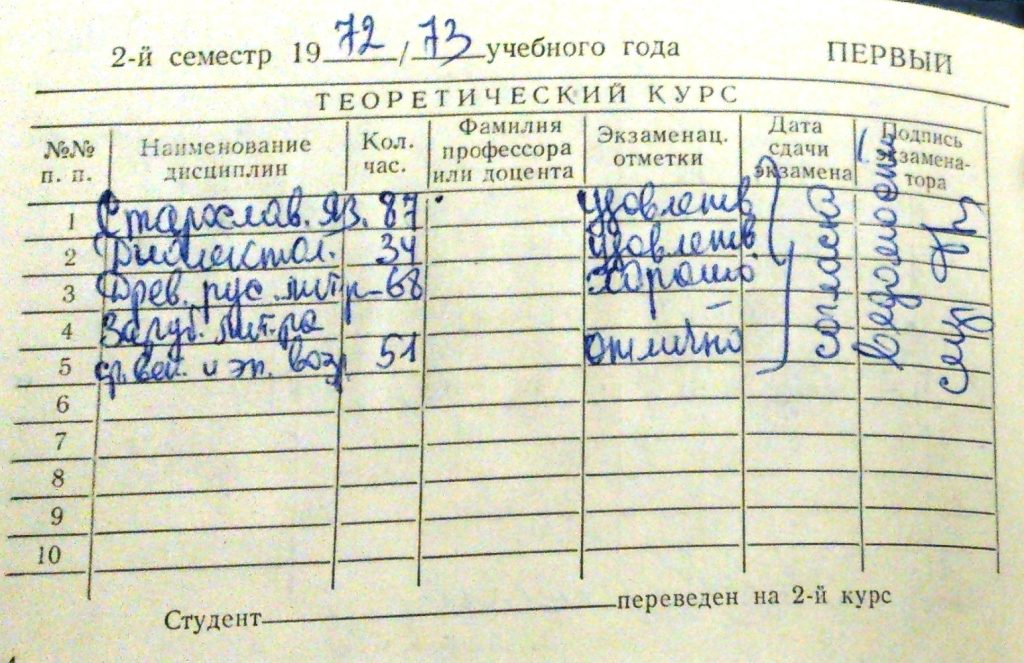 2-й семестр 1972/73 учебного года ПЕРВЫЙ
ТЕОРЕТИЧЕСКИЙ КУРС
№№ п. п. Наименование дисциплин Кол. час. Фамилия профессора или доцента Экзаменац. отметки Дата сдачи экзамена Подпись экзаменатора
1 Старослав. яз. 87 удовлетв
2 Диалектол. 34 удовлетв
3 Древ. рус. лит-р- 68 хорошо
4 Заруб. лит-ра –
5 ср. век. и эп. возр 51 отлично
согласно
ведомости
6
7
8
9
10
Студент переведен на 2-й курс